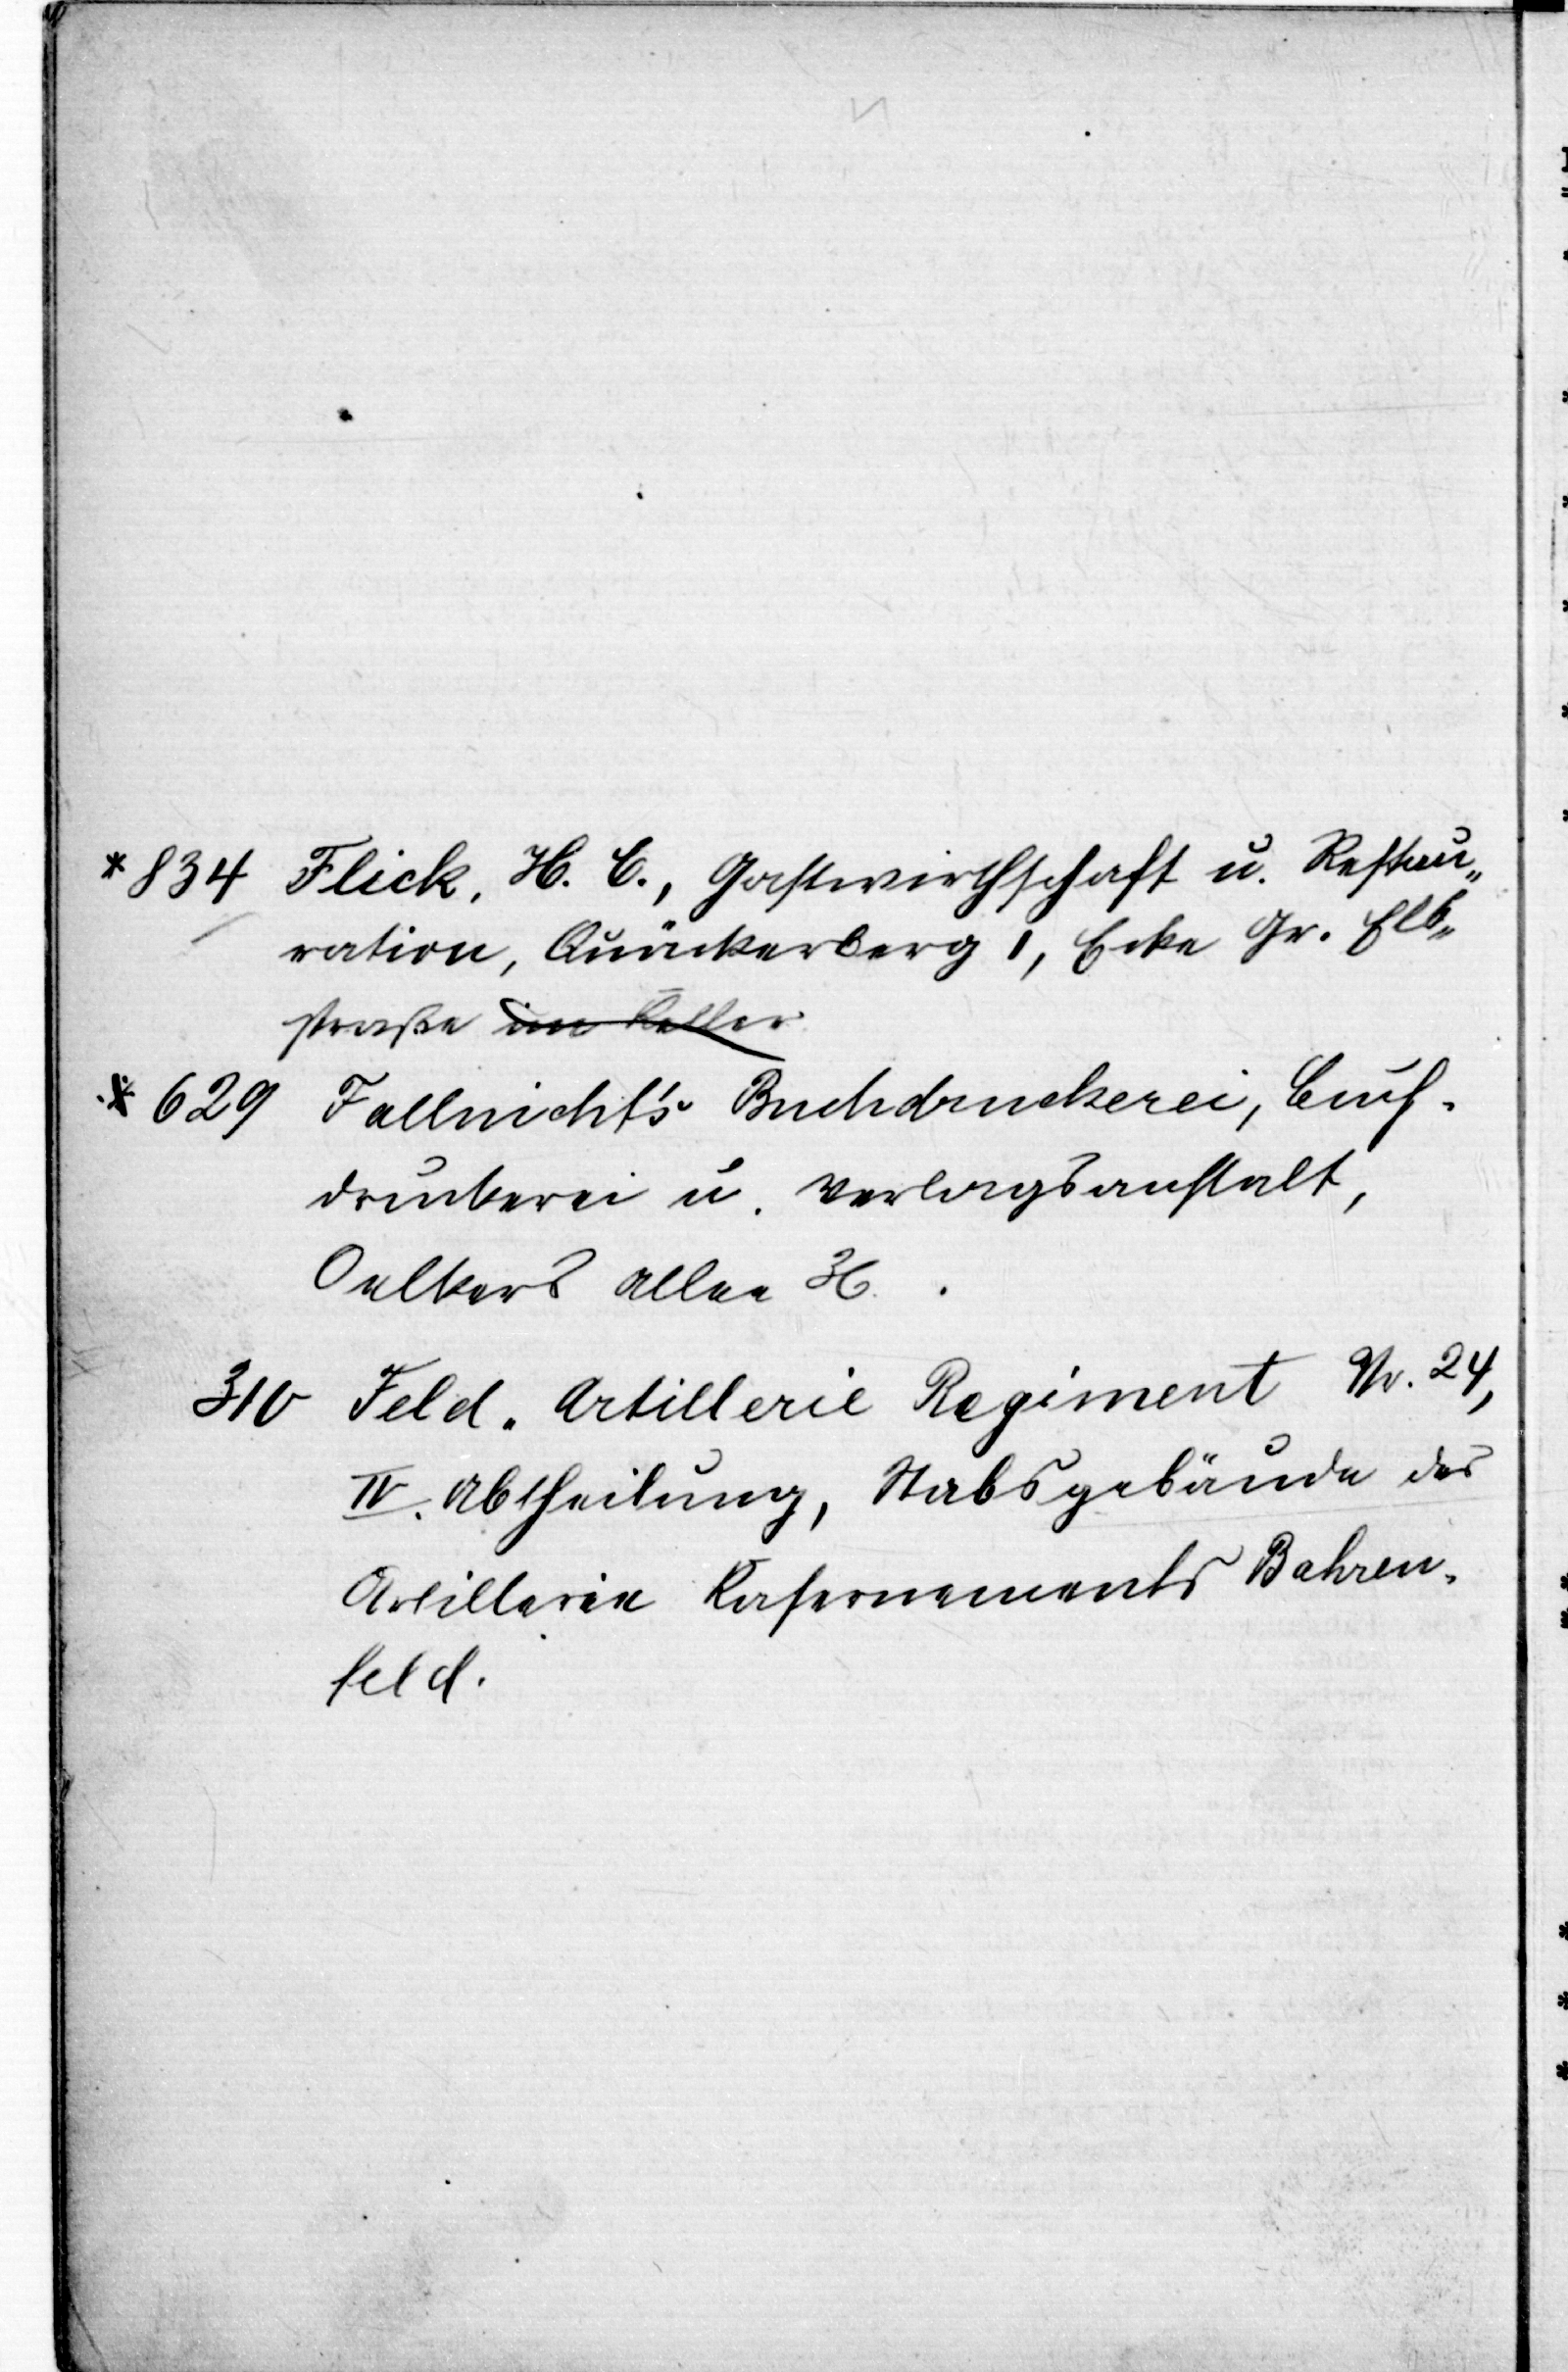 * 834 Flick, H. C., Gastwirthschaft u. Restau„
ration, Quäckerberg 1, Ecke Gr. Elb„
straße im Keller
* 629 Fallnicht's Buchdruckerei, Buch-
druckerei u. Verlagsanstalt,
Oelkers Allee 36.
310 Feld-Artillerie Regiment No. 24,
IV. Abtheilung, Stabsgebäude des
Artillerie Kasernements Bahren-
feld.